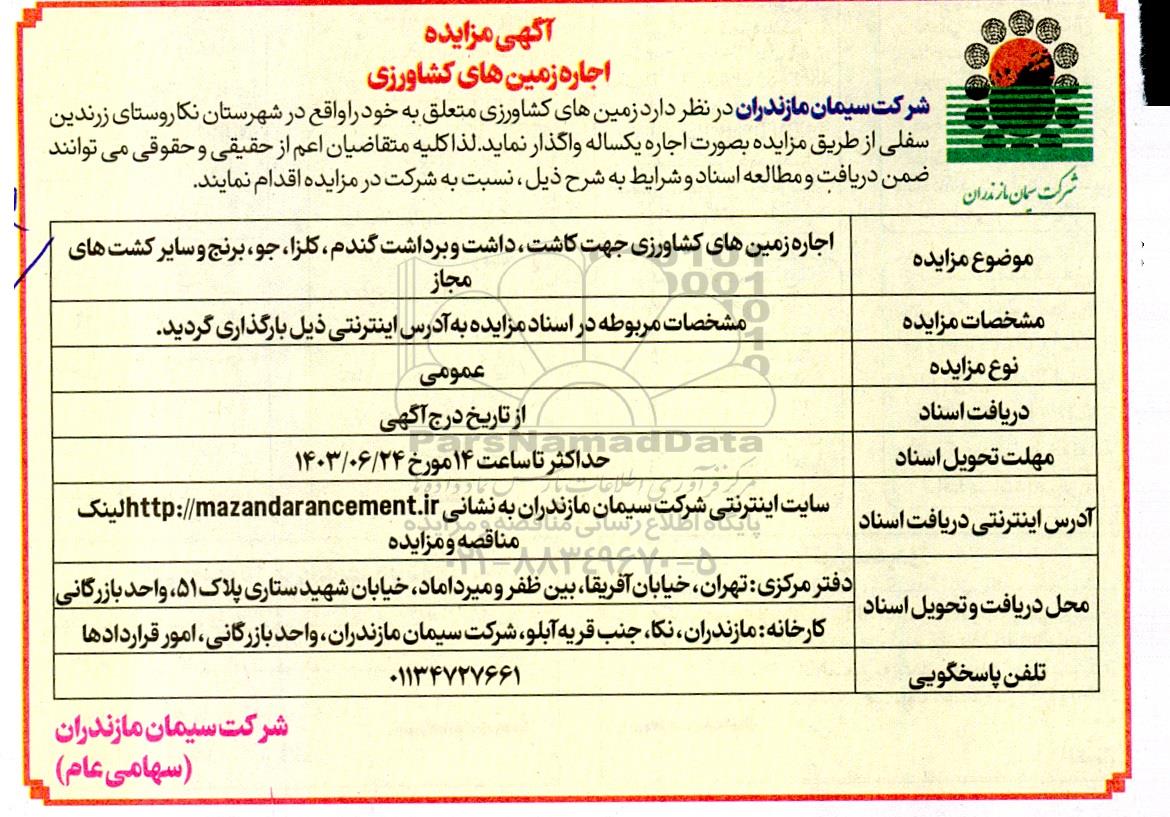 آگهی مزایده
اجاره زمین های کشاورزی
شرکت سیمان مازندران در نظر دارد زمین های کشاورزی متعلق به خود را واقع در شهرستان نکا روستای زرندین
سفلی از طریق مزایده بصورت اجاره یکساله واگذار نماید. لذا کلیه متقاضیان اعم از حقیقی و حقوقی می توانند
ضمن دریافت و مطالعه اسناد و شرایط به شرح ذیل، نسبت به شرکت در مزایده اقدام نمایند.
شرکت سیمان مازندران
موضوع مزایده
اجاره زمین های کشاورزی جهت کاشت، داشت و برداشت گندم، کلزا، جو، برنج و سایر کشت های
مجاز
مشخصات مزایده
مشخصات مربوطه در اسناد مزایده به آدرس اینترنتی ذیل بارگذاری گردید.
نوع مزایده
عمومی
دریافت اسناد
از تاریخ درج آگهی
مهلت تحویل اسناد
حداکثر تا ساعت ۱۴ مورخ ۱۴۰۳/۰۶/۲۴
آدرس اینترنتی دریافت اسناد
سایت اینترنتی شرکت سیمان مازندران به نشانی http://mazandarancement.ir لینک
مناقصه و مزایده
محل دریافت و تحویل اسناد
دفتر مرکزی: تهران، خیابان آفریقا، بین ظفر و میرداماد، خیابان شهید ستاری پلاک ۵۱، واحد بازرگانی
کارخانه: مازندران، نکا، جنب قریه آبلو، شرکت سیمان مازندران، واحد بازرگانی، امور قراردادها
تلفن پاسخگویی
۰۱۱۳۴۷۲۷۶۶۱
شرکت سیمان مازندران
(سهامی عام)
ParsNamadData
مرکز فرآوری اطلاعات پارس نماد داده ها
پایگاه اطلاع رسانی مناقصه و مزایده
۰۲۱-۸۸۳۴۹۶۷۰-۵